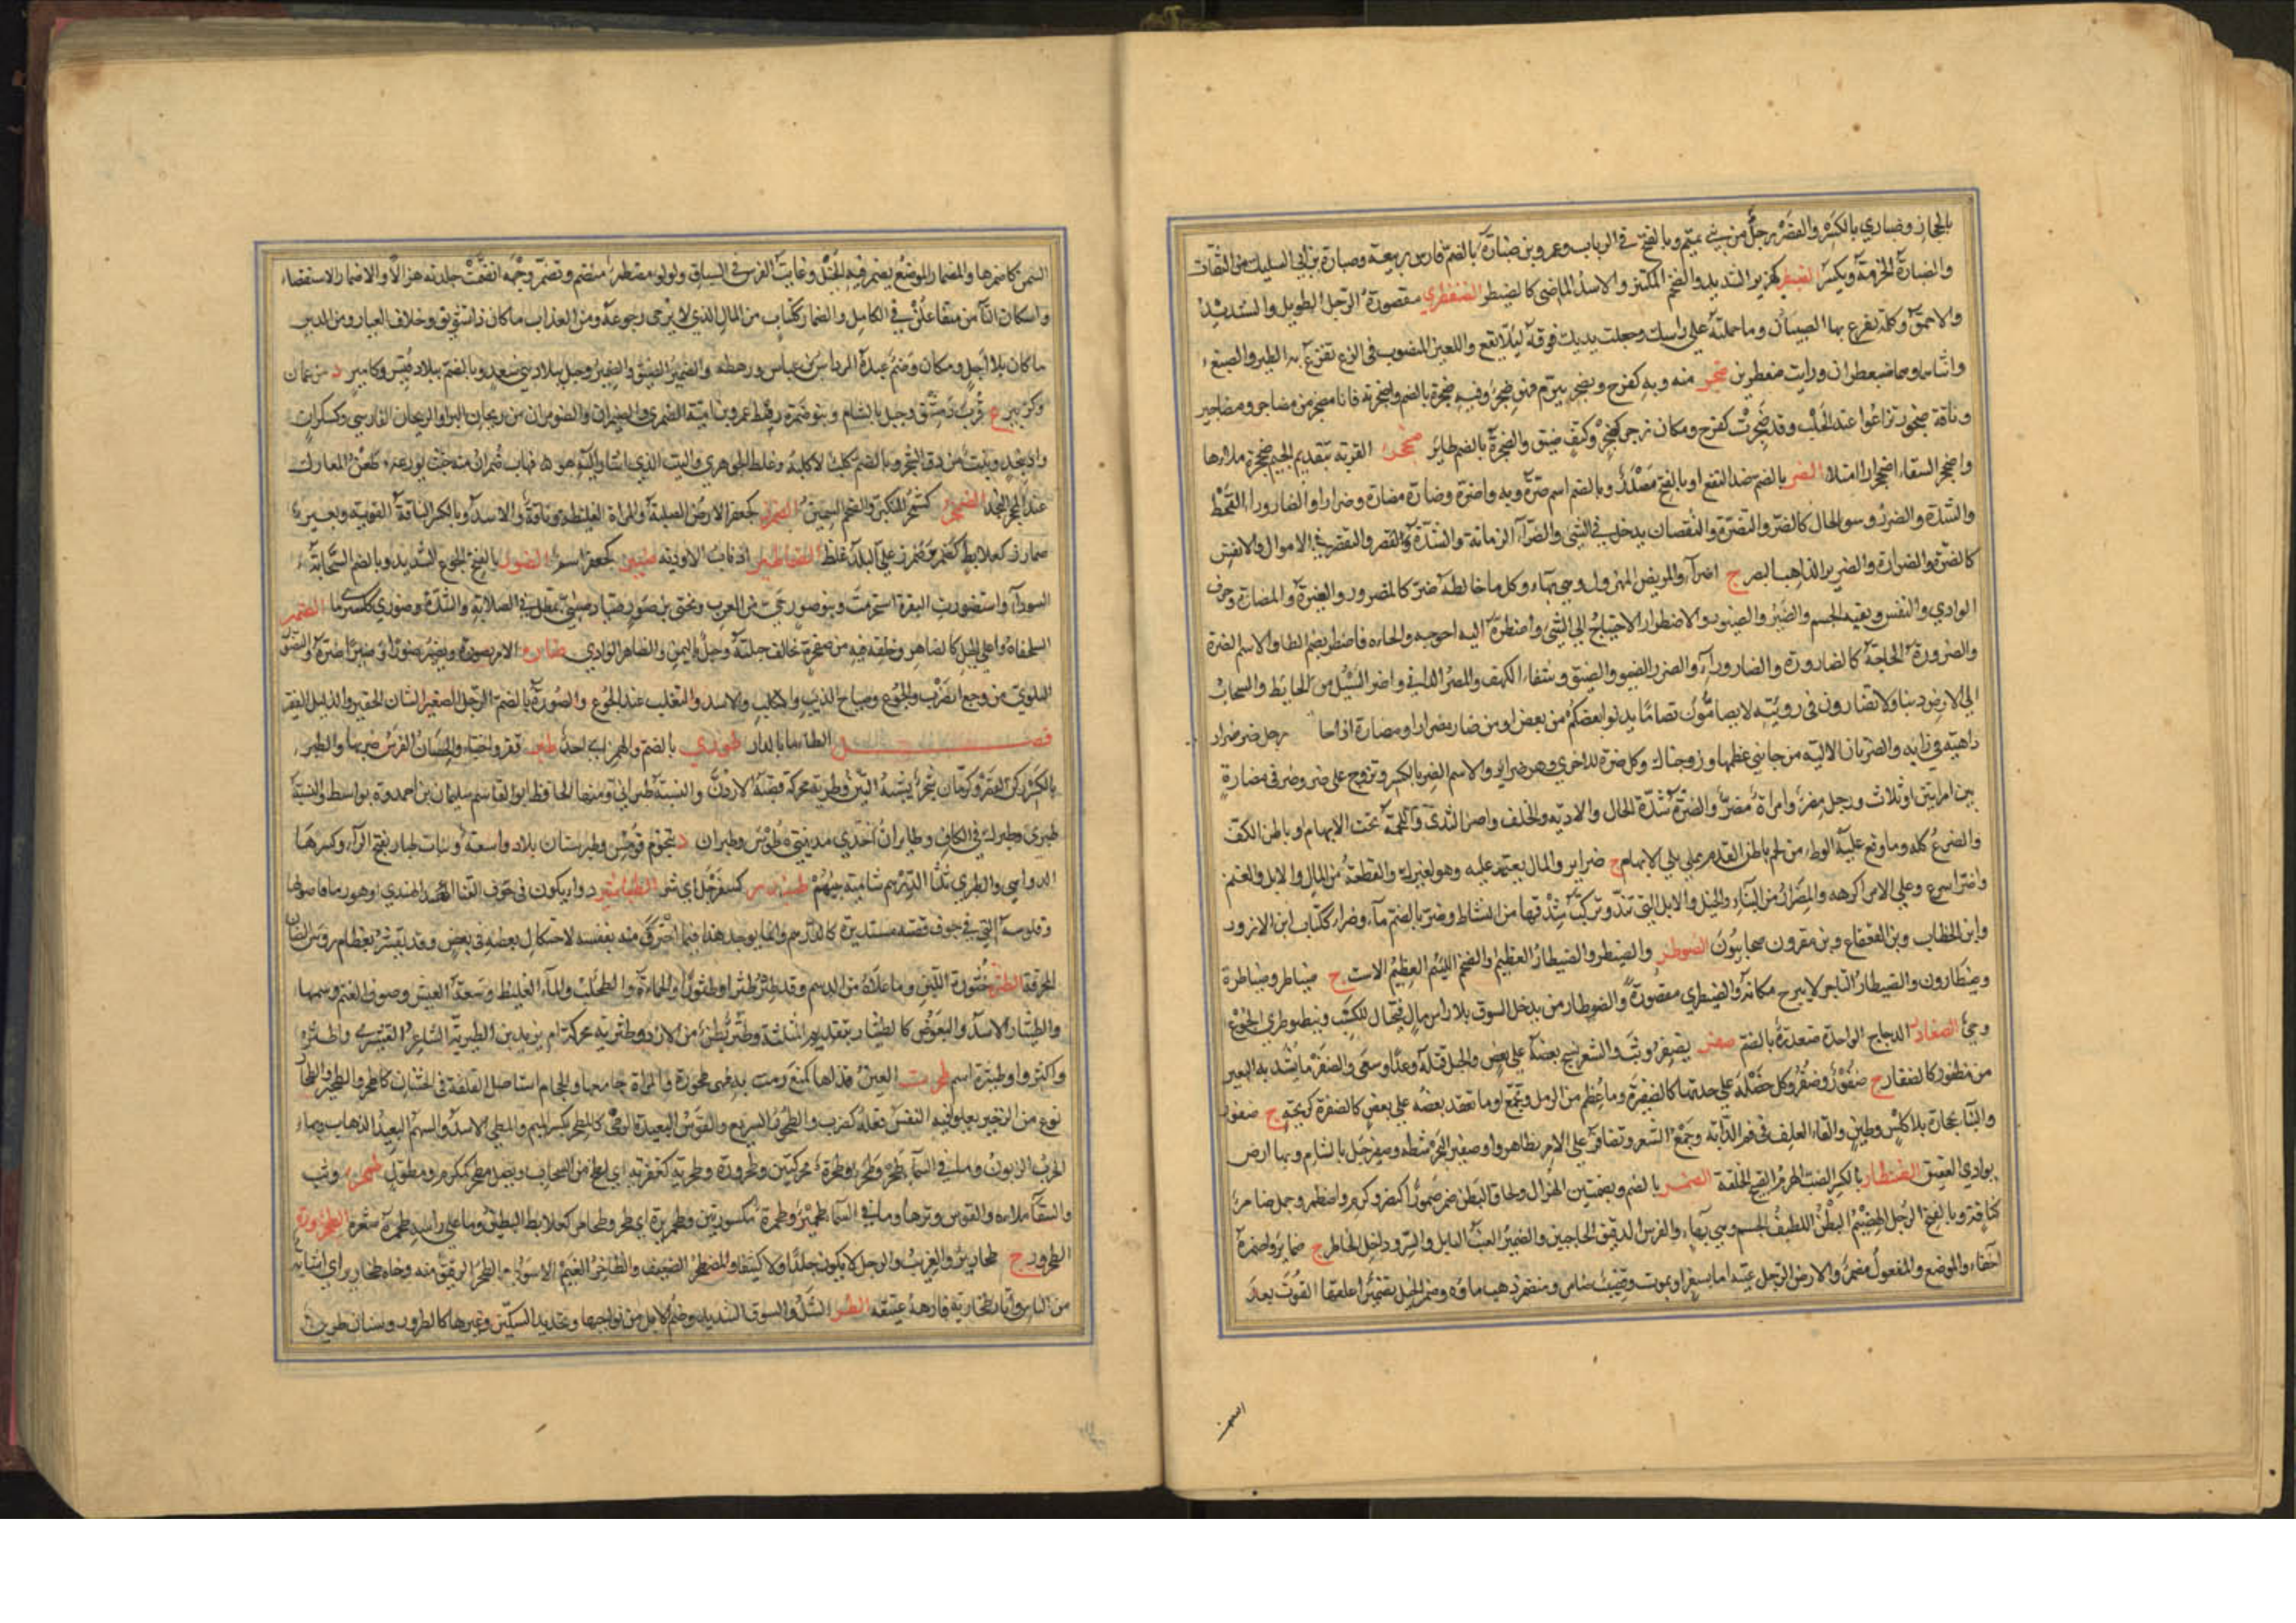 بالحجاز وضباري بالكسر والقصر رجل من بني تميم وبالفتح في الرباب وعمرو بن ضبارة بالضم فارس ربيعة وضبارة بن ابي السليك من الثقات
والضبارة الحزمة ويكسر الضبطر كهزبر الشديد والضخم المكتنز والاسد الماضي كالضيطر الضبغطري مقصورة الرجل الطويل والشديد
والاحمق وكلمة يفزع بها الصبيان وما حملته على راسك وجعلت يديك فوقه ليلا يقع واللعين المنصوب في الزرع تفزع به الطير والضبع
وانثاها وهما ضبغطران ورايت ضبغطرين ضجر منه وبه كفرح وتضجر تبرم فهو ضجر وفيه ضجرة بالضم واضجرته فانا مضجر من مضاجر ومضاجير
وناقة ضجور ترغوا عند الحلب وقد ضجرت كفرح ومكان ضجر وكتف ضيق والضجرة بالضم طاير ضجحر القربة بتقديم الجيم ضجحرة ملاها
واضجحر السقاء اضجحرارا امتلا الضر بالضم ضد النفع او بالفتح مصدر وبالضم اسم ضره وبه واضره وضاره مضارة وضرارا والضارورا القحط
والشدة والضرر وسو الحال كالضر والتضرة والنقصان يدخل في الشي والضراء الزمانة والشدة والنقص في الاموال والانفس
كالضرة والضرارة والضرير الذاهب البصر ج اضراء والمريض المهزول وهي بهاء وكل ما خالطه ضر كالمضرور والغيرة والمضارة وحرف
الوادي والنفس وبقية الجسم والاضطرار الاحتياج الى الشي واضطره اليه احوجه والجاه فاضطر بضم الطا والاسم الضرة
والضرورة الحاجة كالضارورة والضارور والضاروراء والضرر الضيق والضيق وشفاء الكهف والمضر الداني واضر السيل من الحايط والسحاب
الى الارض دنيا ولا تضارون في رويته لا يضامون تضاما يدنو بعضكم من بعض او من ضاره ضرارا ومضارة اذا خا رجل ضر ضرار
داهية في رايه والضرتان الالية من جانبي عظمها وزوجتاك وكل ضرة للاخرى وهن ضراير والاسم الضر بالكسر وتزوج على ضر وضر في مضارة
بين امراتين او ثلاث ورجل مضر وامراة مضر والضرة شدة الحال والاذية والخلف واصل الثدي واللحمة تحت الابهام او باطن الكف
والضرع كله وما وقع عليه الوطء من لحم باطن القدم مما يلي الابهام ج ضراير والمال يعتمد عليه وهو لغيرك والقطعة من المال والابل والغنم
واضر اسرع وعلى الامر اكرهه والمضرار من النساء والخيل والابل التي تند وتركب شدقها من النشاط وضر بالضم ماء وضرار ككتاب ابن الازور
وابن الخطاب وبن القعقاع وبن مقرون صحابيون الضوطر والضيطر والضيطار العظيم والضخم اللئيم العظيم الاست ج ضياطر وضياطرة
وضيطارون والضيطار التاجر لا يبرح مكانه والضيطري مقصورة والضوطار من يدخل السوق بلا راس مال فيحتال للكسب وبنو ضوطري الجوع
وحي الضغادر الدجاج الواحدة ضغدرة بالضم ضفر يضفر وثب والشعر نسج بعضه على بعض والحبل فتله وعدا وسعى والضفر ما يشد به البعير
من مضفور كالضفار ج ضفور وضفر وكل خصلة على حدتها كالضفيرة وما عظم من الرمل وتجمع او ما تعقد بعضه على بعض كالضفرة كزنخة ج ضفور
والبناء بحجارة بلا كلس وطين والقاء العلف في فم الدابة وجمع الشعر وتضافروا على الامر تظاهروا وضفير البحر شطه وضفير جبل بالشام وبهاء ارض
بوادي العقيق الضفطار بالكسر الضب الهرم القبيح الخلقة الضمر بالضم وبضمتين الهزال ولحاق البطن ضمر ضمورا كنصر وكرم واضطمر وجمل ضامر
كناقة وبالفتح الرجل الهضيم البطن اللطيف الجسم وهي بهاء والفرس الدقيق الحاجبين والضمير العنب الذابل والسر وداخل الخاطر ج ضماير واضمره
اخفاه والموضع والمفعول مضمر والارض الرجل غيبته اما بسفر او بموت وقضيب ضامر ومنضمر ذهب ماوه وضمر الخيل تضميرا علفها القوت بعد
السمن
السمن كاضمرها والمضمار الموضع يضمر فيه الخيل وغاية الفرس في السباق ولولو مضطمر منضم وتضمر وجهه انضمت جلدته هزالا والاضمار الاستقصاء
واسكان التاء من متفاعلن في الكامل والضمار ككتاب من المال الذي لا يرجى رجوعه ومن العذاب ما كان ذا تسويق وخلاف العيان ومن الدين
ما كان بلا اجل ومكان وصنم عبده العباس بن مرداس ورهطه والضمر الضيق والضمير وجبل ببلاد بني سعد وبالضم ببلاد قيس وكامير د من عمان
وكزبير ع قرب دمشق وجبل بالشام وبنو ضمرة رهط عمرو بن امية الضمري والضيمران والضومران من ريحان البر او الريحان الفارسي وكسكران
واد بنجد وبنت من دق الشجر وبالضم كلب لا كلبة وغلط الجوهري والبيت الذي انشده وانما هو فهاب ضمران منه حيث يوزعه طعن المعارك
عند المحجر النجد الضمخر كشمخر المتكبر والضخم السمين الضمرز كجعفر الارض الصلبة والمراة الغليظة وناقة والاسد وبالكسر الناقة القوية وبعير
ضمارز كعلابط وضمرز على البلد غلظ الضماطير اذناب الاودية ضنبر كجعفر اسم الضور بالفتح الجوع الشديد وبالضم السحابة
السودا واستضورت البقرة استحرمت وبنو ضور حي من العرب ويحيى بن ضور وضوري كسكرى ما الضهر
السلحفاة واعلى الجبل كالضاهر وخلقة فيه من صخرة تخالف جبلته وجبل باليمن والضاهر الوادي ضاره الامر يضوره ويضيره ضورا وضيرا ضره والتضور
التلوي من وجع الضرب والجوع وصياح الذيب والكلب والاسد والثعلب عند الجوع والضورة بالضم الرجل الصغير الشان الحقير والذليل الفقير
فصل الطاء ما بالدار طوري بالضم والهمز اي احد طبر قفز واختباء والحصان الفرس ضربها والطبر
بالكسر ركن القصر وكرمان شجر يشبه التين وطبرية محركة قصبة الاردن والنسبة طبراني ومنها الحافظ ابو القاسم سليمان بن احمد وة بواسط والنسبة
طبري وطبرك في الكاف وطابران احدى مدينتي طوس وطبران د بتخوم قومس وطبرستان بلاد واسعة وبنات طبار بفتح الراء وكسرها
الدواهي والطبري ثلثا الدرهم شامية طبندر كسفرجل اي شر الطباشير دواء يكون في جوف القنا الهندي او هو رماد اصولها
وفلوسه التي في جوف قصبه مستديرة كالدرهم وانما يوجد هذا فيما احترق منه بنفسه لاحتكاك بعضه في بعض وقد يغش بعظام روس الضان
المحرقة الطثرة خثورة اللبن وما علاه من الدسم وقد طثر طثرا وطثورا والحماة والطحلب والماء الغليظ وسعة العيش وصوف الغنم وسمنها
والطيثار الاسد والبعوض كالطيثار بتقديم المثلثة وطثر بطن من الازد وطثرية محركة ام يزيد بن الطثرية الشاعر القشيري واطثروا
واكثروا وطيثرة اسم طحرت العين قذاها كمنع رمت به فهي طحورة والمراة جامعها والحجام استاصل القلفة في الختان كاطحر والطحير والطحار
نوع من الزحير يعلو فيه النفس فعله كضرب والطحور السريع والقوس البعيدة الرمي كالمطحر بكسر الميم والمطحر الاسد والسهم البعيد الذهاب وبهاء
الحرب الزبون وما في السماء طحر وطحرة محركتين وطحرورة وطحرية كعفرية اي لطخ من السحاب ونصل مطحر كمكرم ومطول طحمر وثب
والسقاء ملاه والقوس وترها وما في السماء طحمرير وطحمرة مكسورتين وطحمريرة اي طحر وطحامر كعلابط البطين وما على راسه طحمرة شعرة الطخرورة
الطحرور ج طخارير والغريب والرجل لا يكون جلدا ولا كثيفا والمضطر الضعيف والطاخر الغيم الاسود والطخر الرقيق منه وجاء طخارير اي اشابة
من الناس واتان طخارية فارهة عتيقة الطر الشل والسوق الشديد وضم الابل من نواحيها وتحديد السكين وغيرها كالطرور وسنان طرير